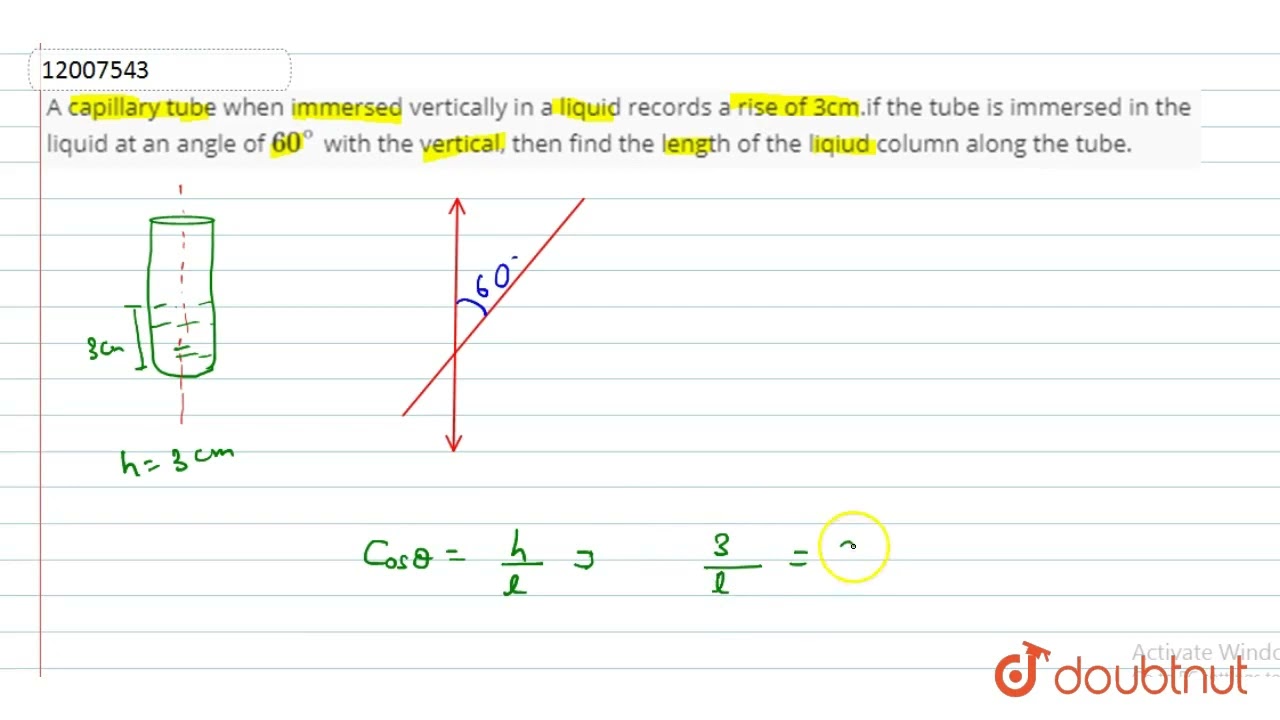 12007543
A capillary tube when immersed vertically in a liquid records a rise of 3cm.if the tube is immersed in the
liquid at an angle of 60° with the vertical, then find the length of the liqiud column along the tube.
60°
3cm
h = 3 cm
Cosθ = h/l ⇒ 3/l =
Activate Windo
doubtnut